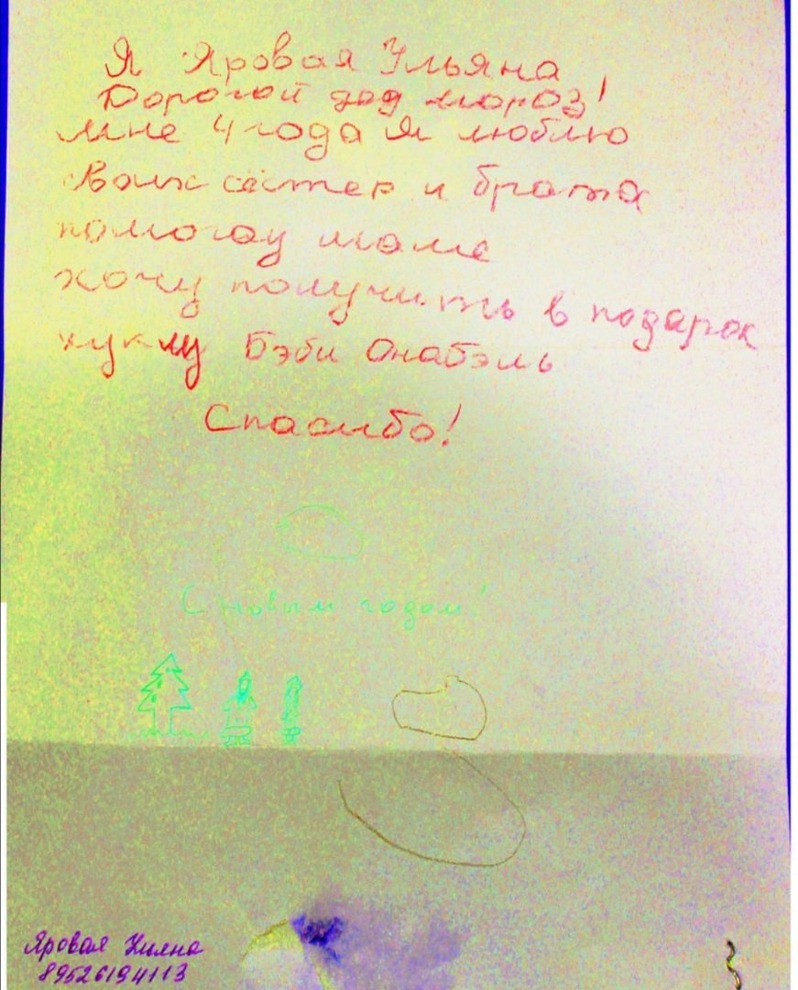 Я Яровая Ульяна
Дорогой дед мороз!
мне 4 года Я люблю
своих сестер и брата
помогаю маме
хочу получить в подарок
куклу Бэби Онабэль
Спасибо!
С новым годом!
Яровая Ульяна
89526194113